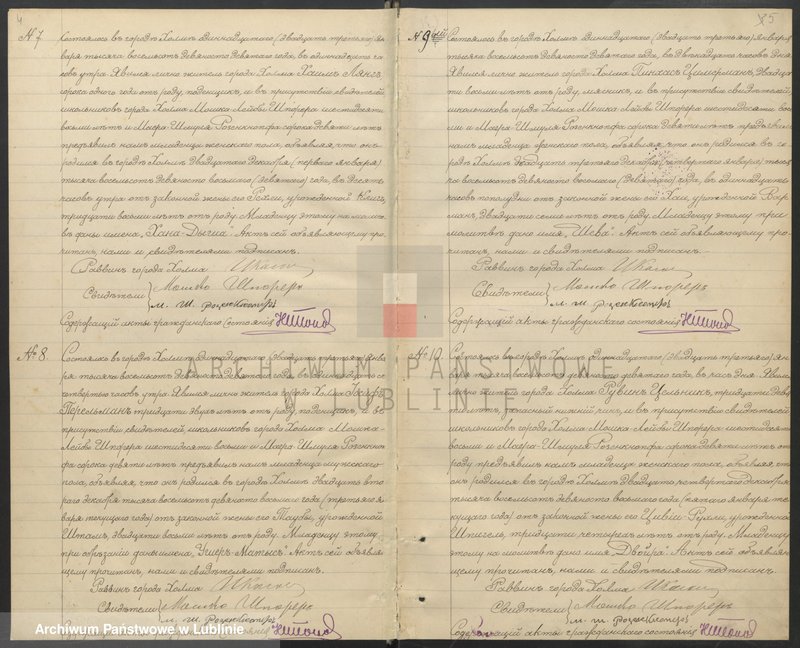 4
№ 7
Состоялось въ городѣ Холмѣ одиннадцатаго (двадцать третьяго) ян-
варя тысяча восемьсотъ девяносто девятаго года, въ одиннадцать ча-
совъ утра. Явился лично житель города Холма Хаимъ
сорока одного года отъ роду, поденщикъ, и въ присутствіи свидѣтелей
школьниковъ города Холма Мошка-Лейбы Шпорера шестидесяти
восьми лѣтъ и Мафра-Шмуля Розенкнопфа сорока девяти лѣтъ
предъявилъ намъ младенца женскаго пола, объявляя, что онъ
родился въ городѣ Холмѣ двадцатаго декабря (перваго января)
тысяча восемьсотъ девяносто восьмаго (девятаго) года, въ десять
часовъ утра отъ законной жены его Рейзи, урожденной
тридцати восьми лѣтъ отъ роду. Младенцу этому на молит-
въ даны имена, „Хана-Дыгна“. Актъ сей объявляющему про-
читанъ, нами и свидѣтелями подписанъ.
Раввинъ города Холма
Свидѣтели Мошко Шпореръ
М. Ш. Розенкнопфъ
Содержащій акты гражданскаго состоянія
№ 8
Состоялось въ городѣ Холмѣ одиннадцатаго (двадцать третьяго) янва-
ря тысяча восемьсотъ девяносто девятаго года, въ одиннадцать съ
четвертью часовъ утра. Явился лично житель города Холма
Перельманъ тридцати двухъ лѣтъ отъ роду, поденщикъ, и въ
присутствіи свидѣтелей школьниковъ города Холма Мошка-
Лейбы Шпорера шестидесяти восьми и Мафра-Шмуля Розенкно-
пфа сорока девяти лѣтъ предъявилъ намъ младенца мужскаго
пола, объявляя, что онъ родился въ городѣ Холмѣ двадцать вто-
раго декабря тысяча восемьсотъ девяносто восьмаго года (третьяго я-
варя текущаго года) отъ законной жены его Таубы, урожденной
Штальъ, двадцати восьми лѣтъ отъ роду. Младенцу этому
при обрѣзаніи даны имена, „Ушеръ-Матысъ“. Актъ сей объявля-
ющему прочитанъ, нами и свидѣтелями подписанъ.
Раввинъ города Холма
Свидѣтели Мошко Шпореръ
М. Ш. Розенкнопфъ
состоянія
5
№ 9
Состоялось въ городѣ Холмѣ одиннадцатаго (двадцать третьяго) января
тысяча восемьсотъ девяносто девятаго года, въ двѣнадцать часовъ дня.
Явился лично житель города Холма Пинхасъ Цимерманъ, двадца-
ти восьми лѣтъ отъ роду, мясникъ, и въ присутствіи свидѣтелей
школьниковъ города Холма Мошка Лейбы Шпорера шестидесяти вось-
ми и Мафра-Шмуля Розенкнопфа сорока девяти лѣтъ предъявилъ
намъ младенца женскаго пола, объявляя, что онъ родился въ го-
родѣ Холмѣ двадцать третьяго декабря (четвертаго января) тыся-
ча восемьсотъ девяносто восьмаго (девятаго) года, въ одиннадцать
часовъ пополудни отъ законной жены его Хаи, урожденной Вар-
манъ, двадцати семи лѣтъ отъ роду. Младенцу этому при
молитвѣ дано имя, „Шева“. Актъ сей объявляющему про-
читанъ, нами и свидѣтелями подписанъ.
Раввинъ города Холма
Свидѣтели Мошко Шпореръ
М. Ш. Розенкнопфъ
Содержащій акты гражданскаго состоянія
№ 10
Состоялось въ городѣ Холмѣ одиннадцатаго (двадцать третьяго) ян-
варя тысяча восемьсотъ девяносто девятаго года, въ часъ дня. Явил-
ся лично житель города Холма Рувинъ Цельникъ, тридцати девя-
ти лѣтъ, запасный нижній чинъ, и въ присутствіи свидѣтелей
школьниковъ города Холма Мошка Лейбы Шпорера шестидесяти
восьми и Мафра-Шмуля Розенкнопфа сорока девяти лѣтъ отъ
роду предъявилъ намъ младенца женскаго пола, объявляя, что
онъ родился въ городѣ Холмѣ двадцать четвертаго декабря
тысяча восемьсотъ девяносто восьмаго года (пятаго января те-
кущаго года) отъ законной жены его Цивіи-Рухли, урожденной
Шпигель, тридцати четырехъ лѣтъ отъ роду. Младенцу
этому на молитвѣ дано имя „Двойра“. Актъ сей объявля-
ющему прочитанъ, нами и свидѣтелями подписанъ.
Раввинъ города Холма
Свидѣтели Мошко Шпореръ
М. Ш. Розенкнопфъ
Содержащій акты гражданскаго состоянія
ARCHIWUM PAŃSTWOWE
W LUBLINIE
Archiwum Państwowe w Lublinie